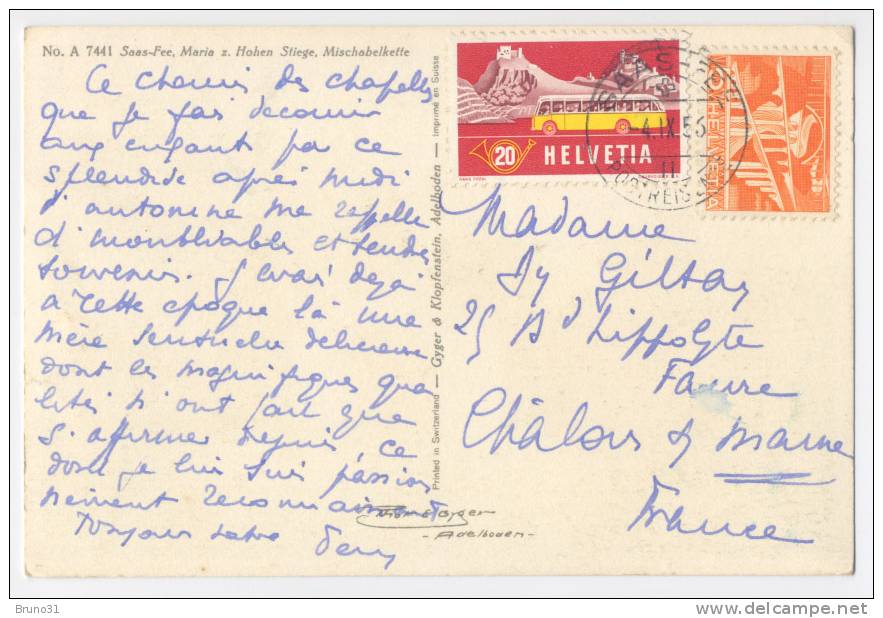 No. A 7441 Saas-Fee, Maria z. Hohen Stiege, Mischabelkette
Ce chemin des chapelles
que je fais decouvrir
aux enfants par ce
splendide après midi
d'automne me rappelle
d'inoubliables et tendres
souvenirs. J'avais dejà
à cette epoque là une
mère delicieuse
dont les magnifiques qua
lités n'ont fait que
s'affirmer depuis ce
dont je lui suis passion
nement reconnaissant
Toujours votre
Printed in Switzerland — Gyger & Klopfenstein, Adelboden — Imprimé en Suisse
20 HELVETIA
HELVETIA
SAAS
-4.IX.53
II
Gyger
- Adelboden -
Madame
Giltay
25 Bd Hippolyte
Faure
Châlons s/ Marne
France
Bruno31
http://www.delcampe.net